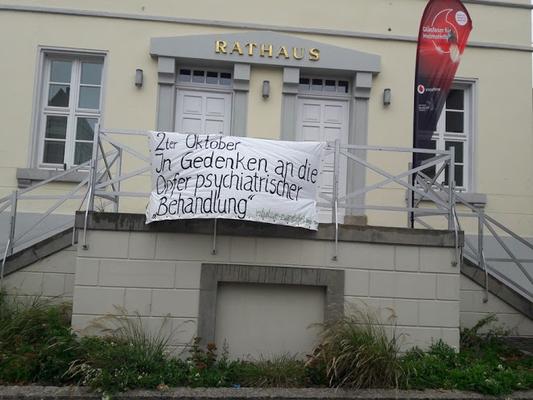 RATHAUS
Glasfaser für
vodafone
2ter Oktober
In Gedenken an die
Opfer psychiatrischer
„Behandlung“